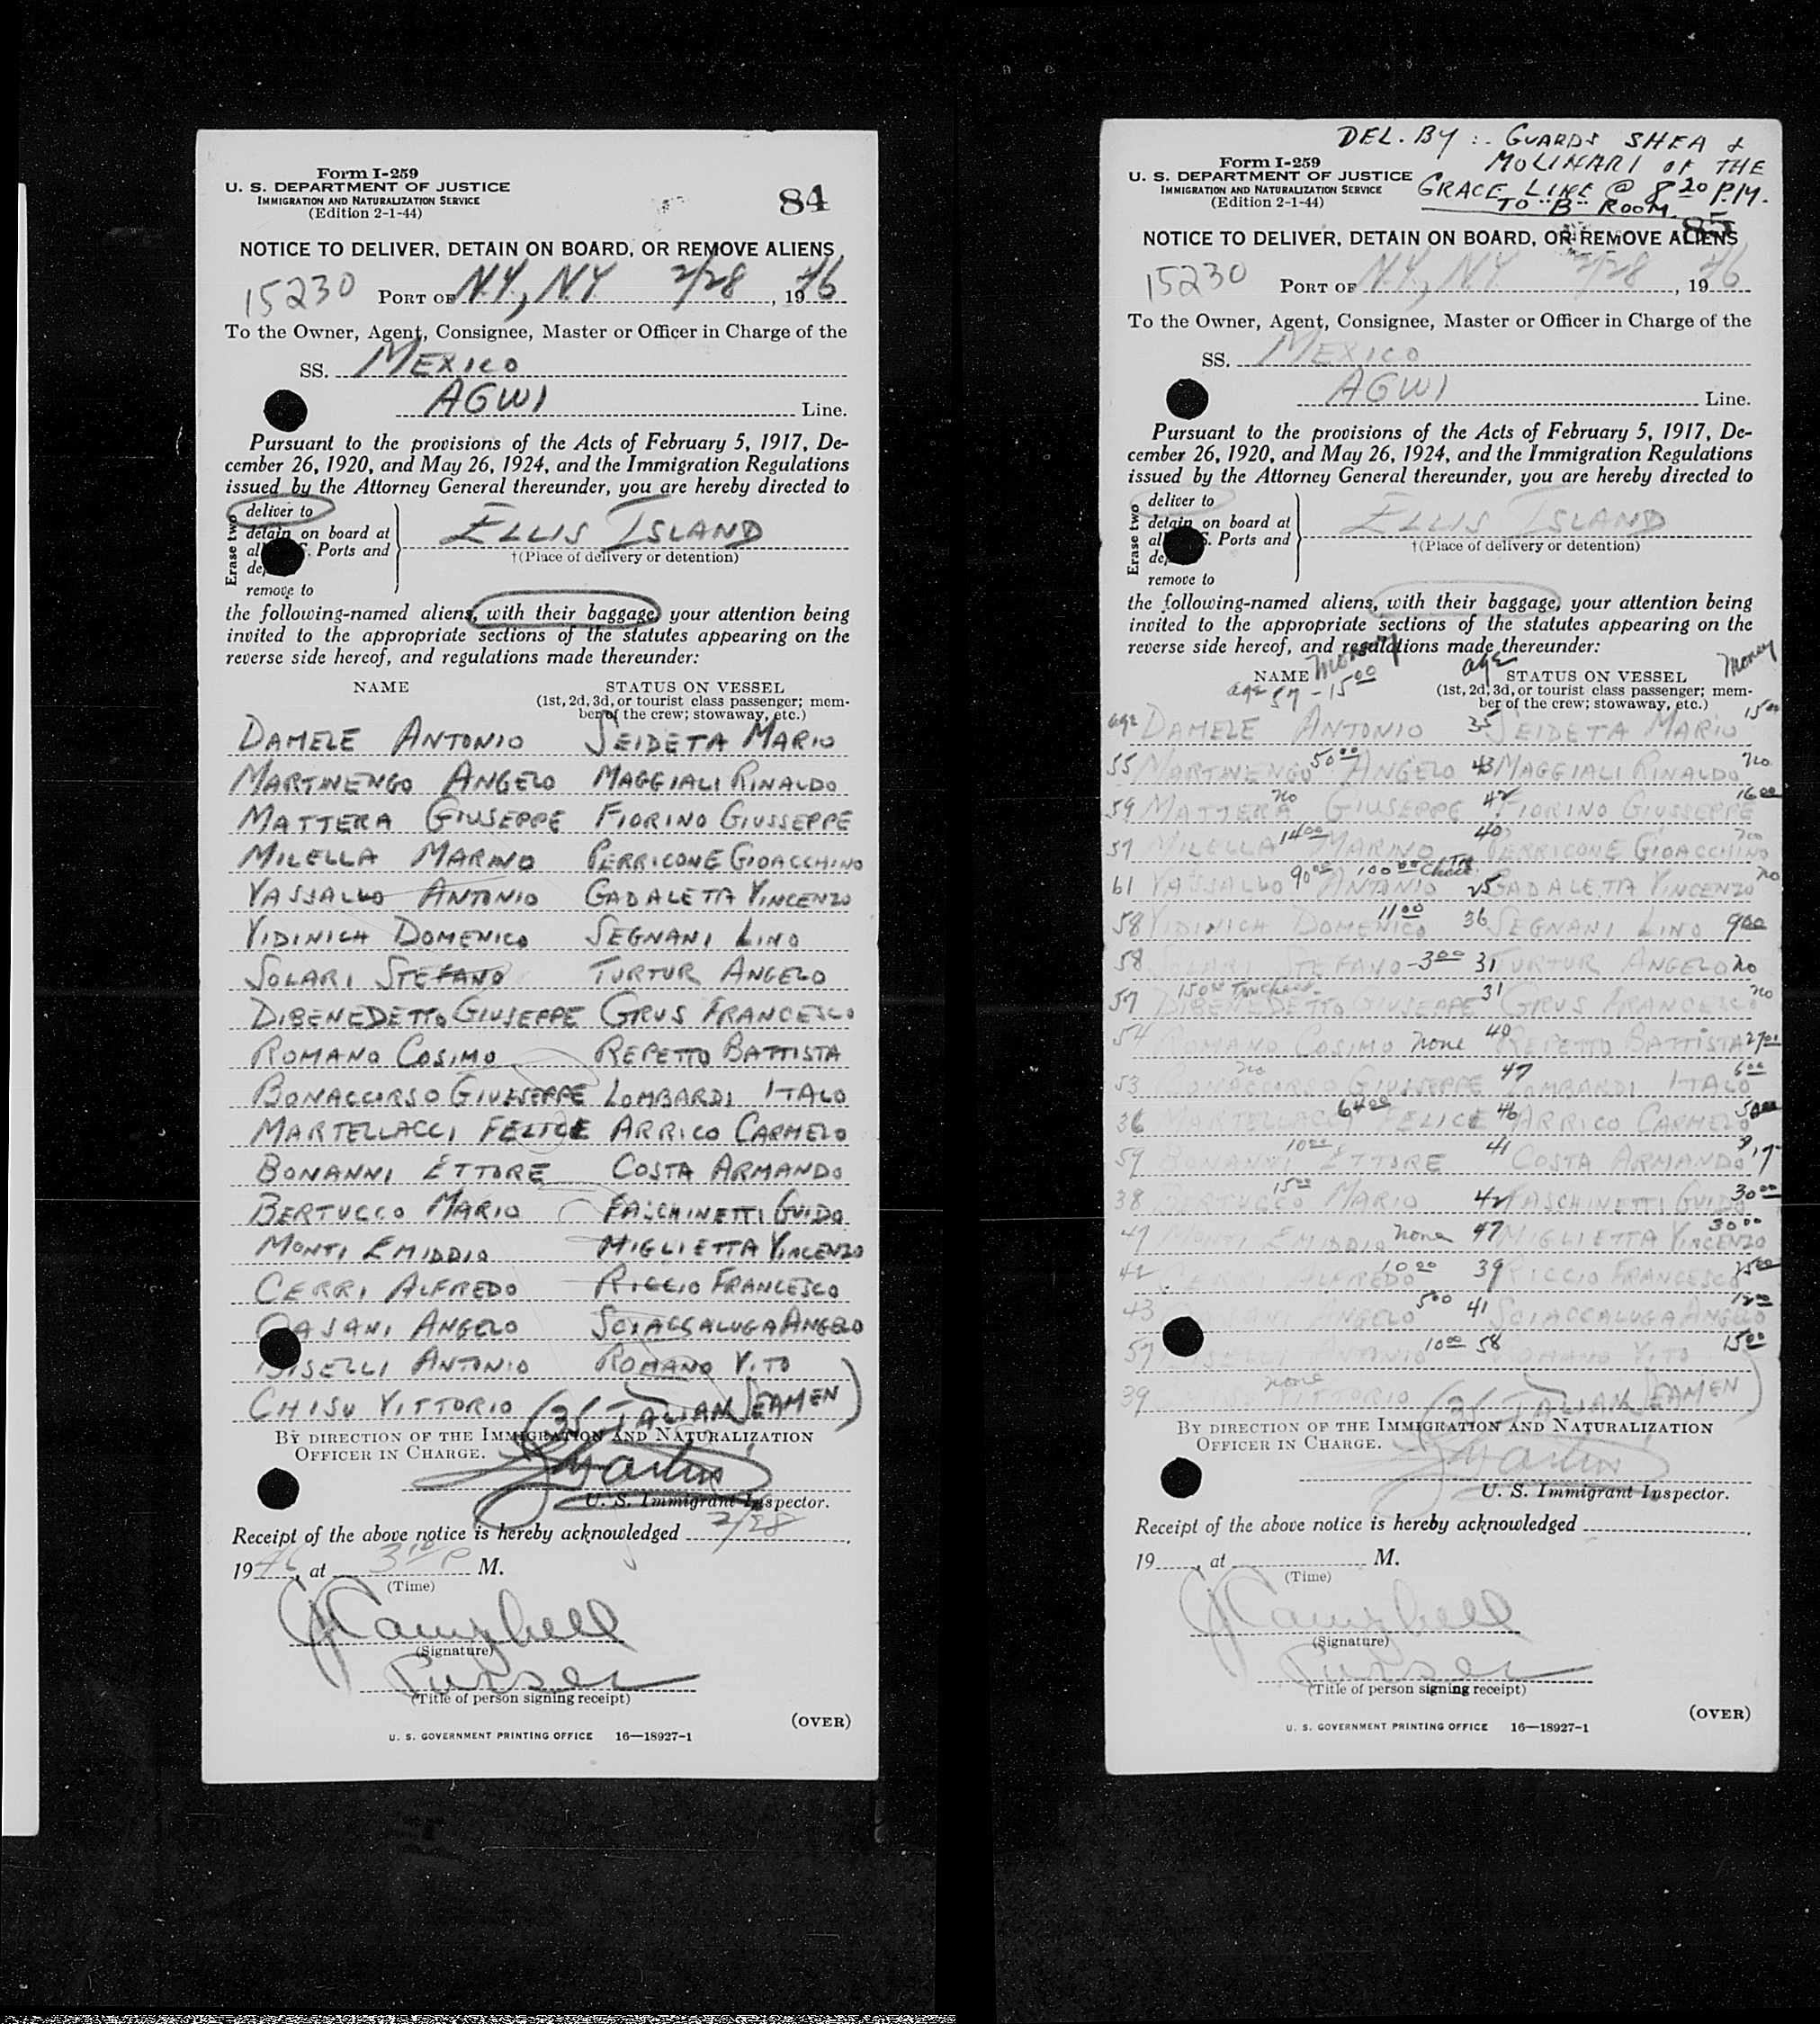 Form I-259
U. S. DEPARTMENT OF JUSTICE
IMMIGRATION AND NATURALIZATION SERVICE
(Edition 2-1-44)
84
NOTICE TO DELIVER, DETAIN ON BOARD, OR REMOVE ALIENS
15230 PORT OF N.Y., N.Y. 2/28, 1946
To the Owner, Agent, Consignee, Master or Officer in Charge of the
SS. MEXICO
AGWI Line.
Pursuant to the provisions of the Acts of February 5, 1917, De-
cember 26, 1920, and May 26, 1924, and the Immigration Regulations
issued by the Attorney General thereunder, you are hereby directed to
Erase two
deliver to
detain on board at
Ports and
remove to
ELLIS ISLAND
†(Place of delivery or detention)
the following-named aliens, with their baggage, your attention being
invited to the appropriate sections of the statutes appearing on the
reverse side hereof, and regulations made thereunder:
NAME STATUS ON VESSEL
(1st, 2d, 3d, or tourist class passenger; mem-
ber of the crew; stowaway, etc.)
DAMELE ANTONIO SEIDETA MARIO
MARTINENGO ANGELO MAGGIALI RINALDO
MATTERA GIUSEPPE FIORINO GIUSSEPPE
MILELLA MARINO PERRICONE GIOACCHINO
VASSALLO ANTONIO GADALETTA VINCENZO
VIDINICH DOMENICO SEGNANI LINO
SOLARI STEFANO TURTUR ANGELO
DIBENEDETTO GIUSEPPE GRUS FRANCESCO
ROMANO COSIMO REPETTO BATTISTA
BONACCORSO GIUSEPPE LOMBARDI ITALO
MARTELLACCI FELICE ARRICO CARMELO
BONANNI ETTORE COSTA ARMANDO
BERTUCCO MARIO FASCHINETTI GUIDO
MONTI EMIDDIO MIGLIETTA VINCENZO
CERRI ALFREDO RICCIO FRANCESCO
ANGELO SCIACCALUGA ANGELO
ANTONIO ROMANO VITO
CHISU VITTORIO (35 ITALIAN SEAMEN)
BY DIRECTION OF THE IMMIGRATION AND NATURALIZATION
OFFICER IN CHARGE.
Martin
U. S. Immigrant Inspector.
Receipt of the above notice is hereby acknowledged 2/28,
1946, at 3 10 P M.
(Time)
J Campbell
(Signature)
Purser
(Title of person signing receipt)
(OVER)
U. S. GOVERNMENT PRINTING OFFICE 16—18927-1
DEL. BY :. GUARDS SHEA &
MOLINARI OF THE
GRACE LINE @ 8 20 P.M.
TO "B" ROOM.
Form I-259
U. S. DEPARTMENT OF JUSTICE
IMMIGRATION AND NATURALIZATION SERVICE
(Edition 2-1-44)
85
NOTICE TO DELIVER, DETAIN ON BOARD, OR REMOVE ALIENS
15230 PORT OF N.Y., N.Y. 2/28, 1946
To the Owner, Agent, Consignee, Master or Officer in Charge of the
SS. MEXICO
AGWI Line.
Pursuant to the provisions of the Acts of February 5, 1917, De-
cember 26, 1920, and May 26, 1924, and the Immigration Regulations
issued by the Attorney General thereunder, you are hereby directed to
Erase two
deliver to
detain on board at
Ports and
remove to
ELLIS ISLAND
†(Place of delivery or detention)
the following-named aliens, with their baggage, your attention being
invited to the appropriate sections of the statutes appearing on the
reverse side hereof, and regulations made thereunder:
NAME money age STATUS ON VESSEL money
age 57 - 15 00 (1st, 2d, 3d, or tourist class passenger; mem-
ber of the crew; stowaway, etc.)
age DAMELE ANTONIO 35 SEIDETA MARIO 15 00
55 MARTINENGO 50 00 ANGELO 43 MAGGIALI RINALDO no
59 MATTERA no GIUSEPPE 42 FIORINO GIUSSEPPE 16 00
57 MILELLA 14 00 MARINO 40 PERRICONE GIOACCHINO no
61 VASSALLO 90 00 ANTONIO 100 00 25 GADALETTA VINCENZO no
58 VIDINICH DOMENICO 11 00 36 SEGNANI LINO 9 00
58 SOLARI STEFANO - 3 00 31 TURTUR ANGELO no
57 DIBENEDETTO GIUSEPPE 31 GRUS FRANCESCO no
54 ROMANO COSIMO none 40 REPETTO BATTISTA 27 01
53 BONACCORSO no GIUSEPPE 47 LOMBARDI ITALO 6 00
36 MARTELLACCI 64 00 FELICE 46 ARRICO CARMELO 50 00
59 BONANNI 10 00 ETTORE 41 COSTA ARMANDO
38 BERTUCCO 15 00 MARIO 42 FASCHINETTI GUIDO 30 00
47 MONTI EMIDDIO none 47 MIGLIETTA VINCENZO 30 00
42 CERRI ALFREDO 10 00 39 RICCIO FRANCESCO 25 00
43 ANGELO 5 00 41 SCIACCALUGA ANGELO 12 00
57 ANTONIO 10 00 58 ROMANO VITO 15 00
39 none VITTORIO (35 ITALIAN SEAMEN)
BY DIRECTION OF THE IMMIGRATION AND NATURALIZATION
OFFICER IN CHARGE.
Martin
U. S. Immigrant Inspector.
Receipt of the above notice is hereby acknowledged
19 , at M.
(Time)
J Campbell
(Signature)
Purser
(Title of person signing receipt)
(OVER)
U. S. GOVERNMENT PRINTING OFFICE 16—18927-1